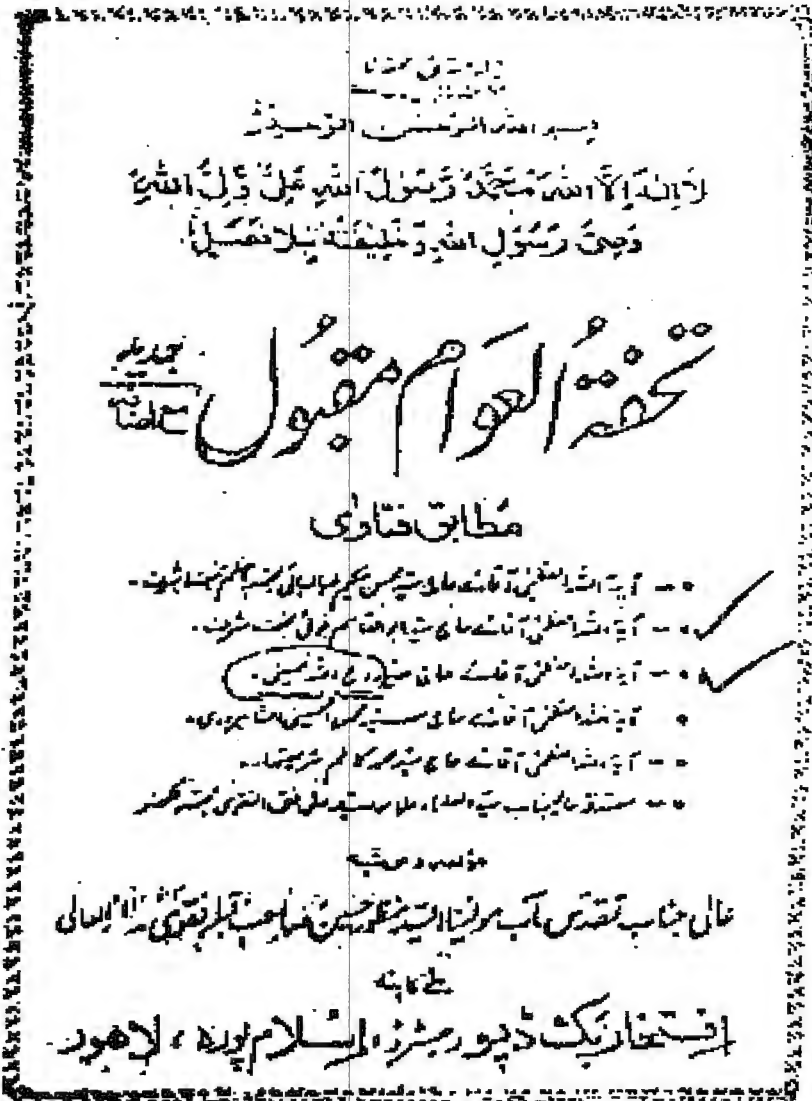 بسم اللہ الرحمٰن الرحیم
لَا اِلٰهَ اِلَّا اللّٰهُ مُحَمَّدٌ رَّسُوْلُ اللّٰهِ عَلِیٌّ وَّلِیُّ اللّٰهِ
وَصِیُّ رَسُوْلِ اللّٰهِ وَ خَلِیْفَتُهٗ بِلَا فَصْلٍ
تحفۃُ العوام مقبُول جدید
مع اضافہ
مُطابق فتاوٰی
۔ آیۃ اللہ العظمٰی آقائے حاج سید محسن حکیم طباطبائی مجتہد اعظم نجف اشرف۔
۔ آیۃ اللہ العظمٰی آقائے حاج سید ابوالقاسم خوئی نجف اشرف۔
۔ آیۃ اللہ العظمٰی آقائے حاج سید روح اللہ خمینی۔
آیۃ اللہ العظمٰی آقائے حاج سید محمود الحسینی الشاہرودی۔
۔ آیۃ اللہ العظمٰی آقائے حاج سید محمد کاظم شریعتمدار۔
۔ مصدقہ عالیجناب سید العلماء علامہ سید علی نقی النقوی مجتہد لکھنؤ
مؤلفہ و مرتبہ
عالی جناب تقدس مآب مولینا السید منظور حسین صاحب قبلہ نقوی مدظلہ العالی
ملنے کا پتہ
افتخار بک ڈپو رجسٹرڈ، اسلام پورہ، لاھور